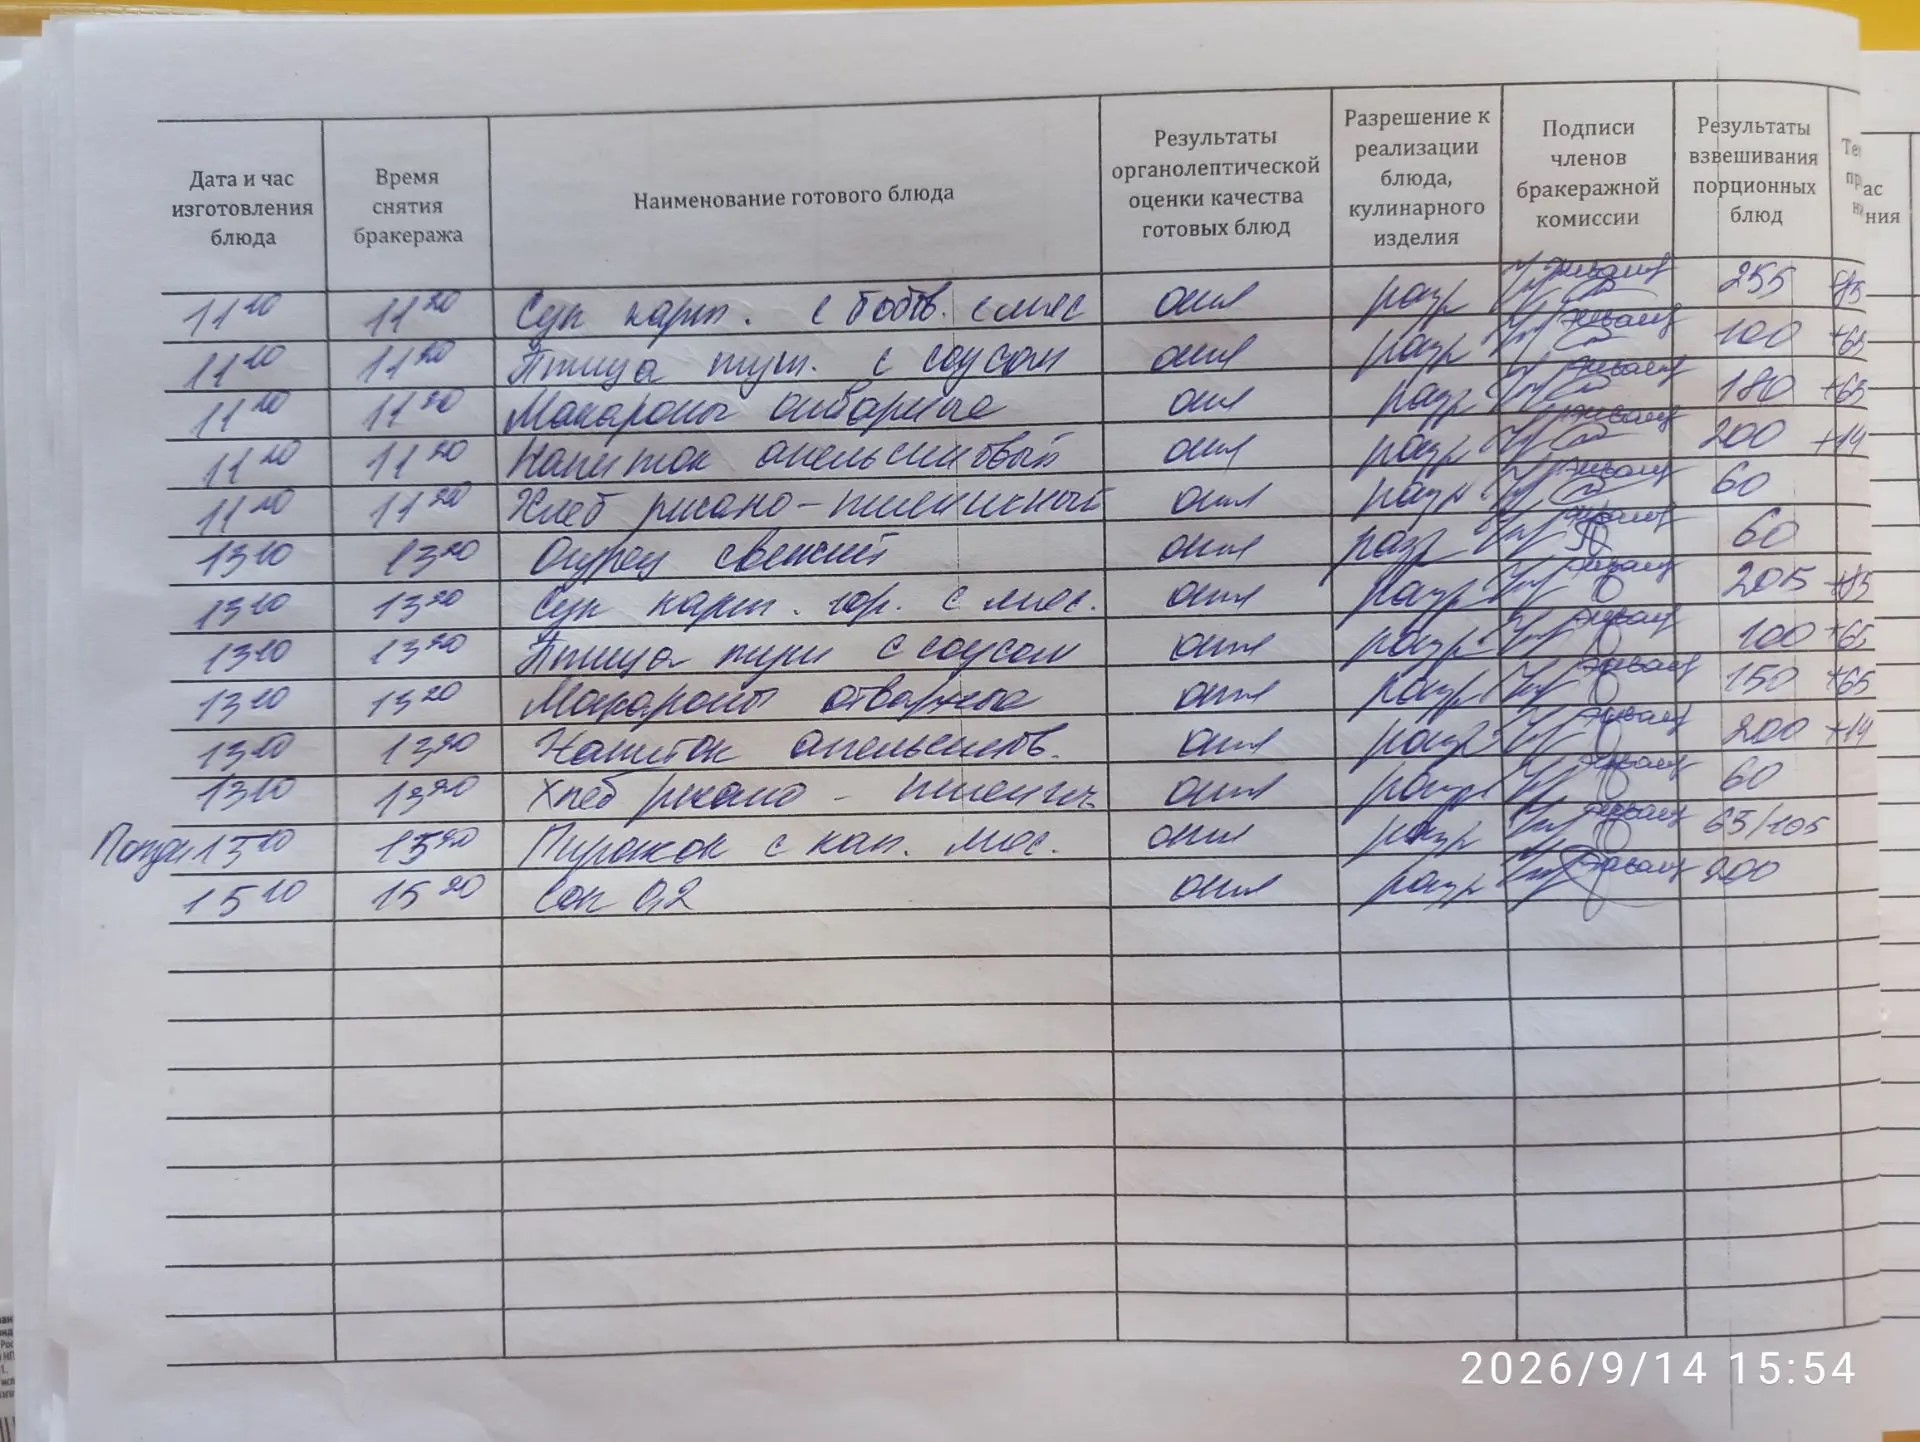 Дата и час изготовления блюда
Время снятия бракеража
Наименование готового блюда
Результаты органолептической оценки качества готовых блюд
Разрешение к реализации блюда, кулинарного изделия
Подписи членов бракеражной комиссии
Результаты взвешивания порционных блюд
ас
ния
11 10 11 20 Суп карт. с бобов. с мяс отл разр 255 +85
11 10 11 20 Птица туш. с соусом отл разр 100 +65
11 10 11 20 Макароны отварные отл разр 180 +65
11 10 11 20 Напиток апельсиновый отл разр 200 +14
11 10 11 20 Хлеб ржано-пшеничный отл разр 60
13 10 13 20 Огурец свежий отл разр 60
13 10 13 20 Суп карт. гор. с мяс. отл разр 205 +85
13 10 13 20 Птица туш с соусом отл разр 100 +65
13 10 13 20 Макароны отварные отл разр 150 +65
13 10 13 20 Напиток апельсинов. отл разр 200 +14
13 10 13 20 Хлеб ржано - пшенич отл разр 60
15 10 15 20 Пирожок с кап. мяс. отл разр 65/105
15 10 15 20 Сок 0,2 отл разр 200
2026/9/14 15:54